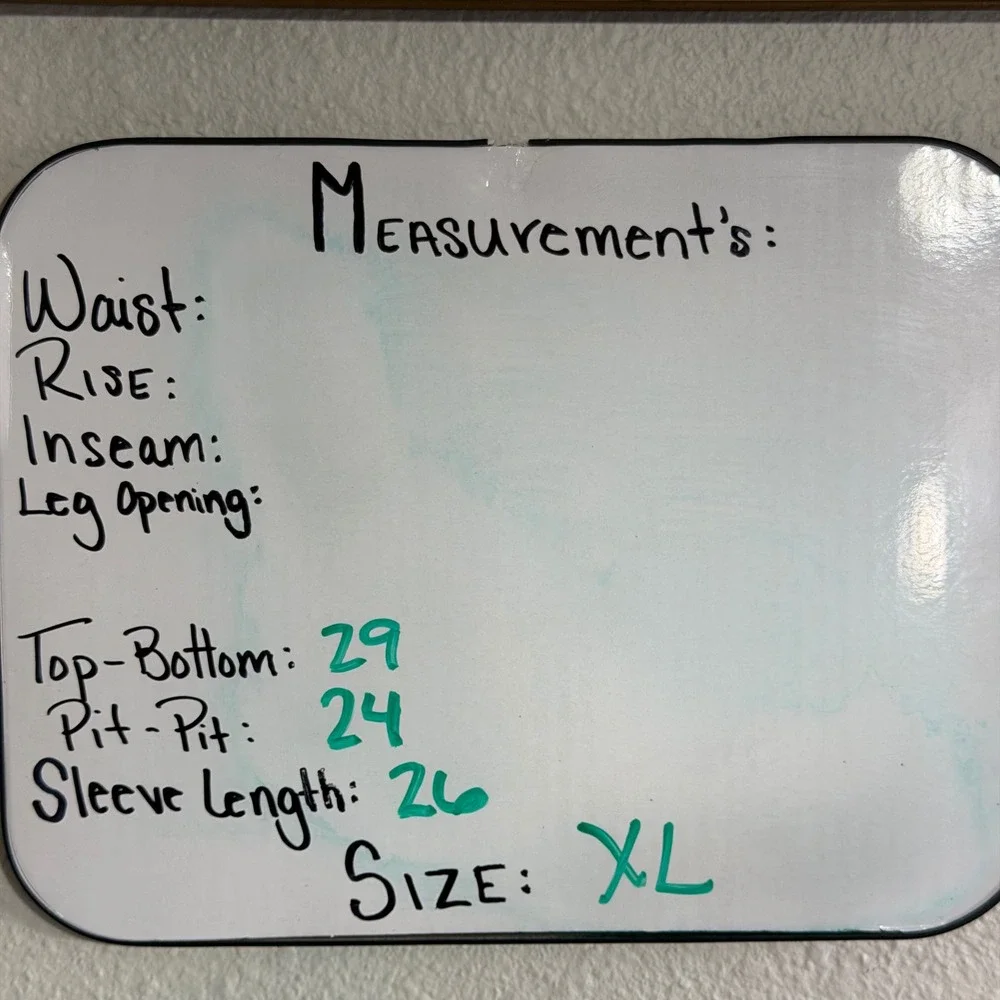 MEASurement's:
Waist:
RISE:
Inseam:
Leg Opening:
Top-Bottom: 29
Pit-Pit: 24
Sleeve Length: 26
SIZE: XL